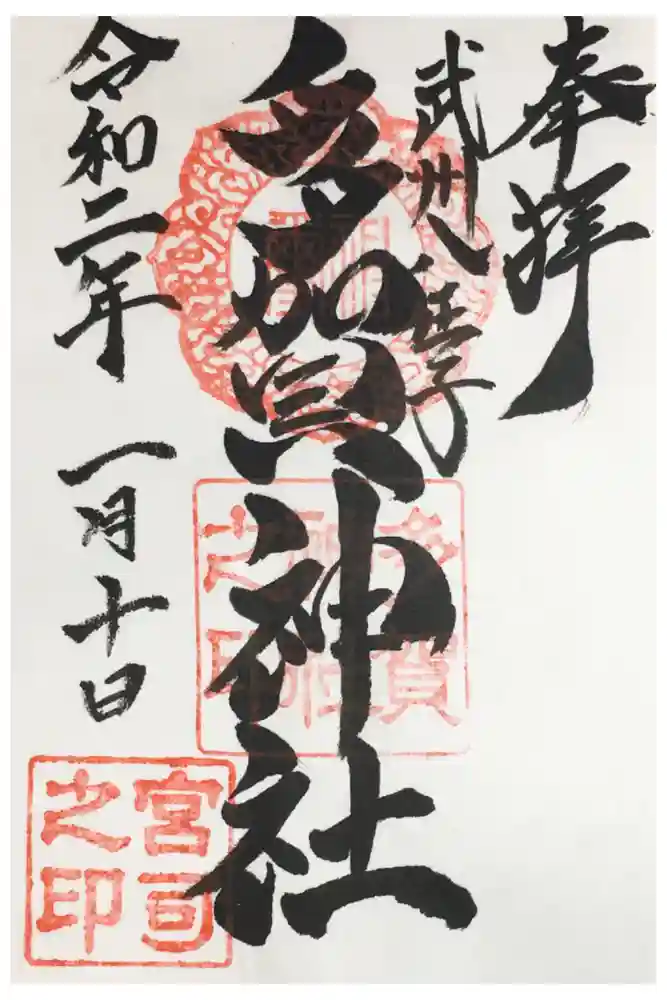 奉拝
武州八王子
多賀神社
令和二年
一月十日
多賀
神社
之印
宮司
之印